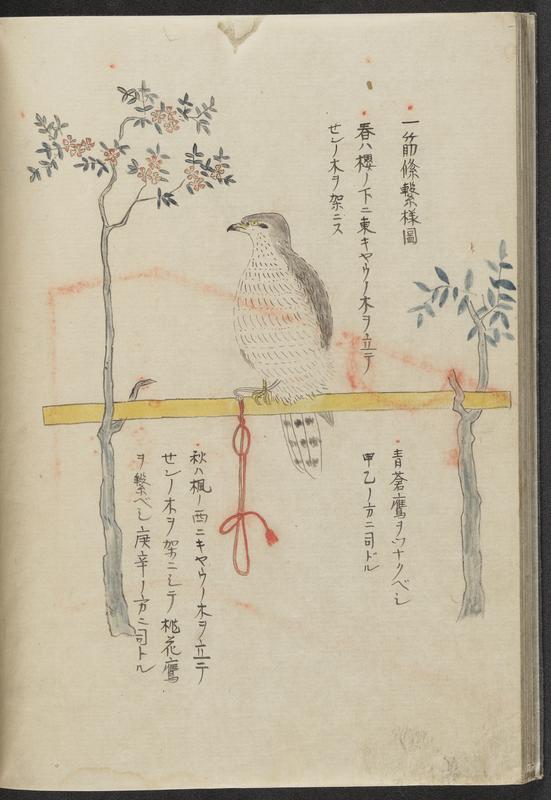 一筋條繋様圖
春ハ櫻ノ下ニ東キヤウノ木ヲ立テ
せンノ木ヲ架ニス
青蒼鷹ヲツナクベシ
甲乙ノ方ニ司ドル
秋ハ楓ノ西ニキヤウノ木ヲ立テ
せンノ木ヲ架ニシテ桃花鷹
ヲ繋ベシ庚辛ノ方ニ司トル